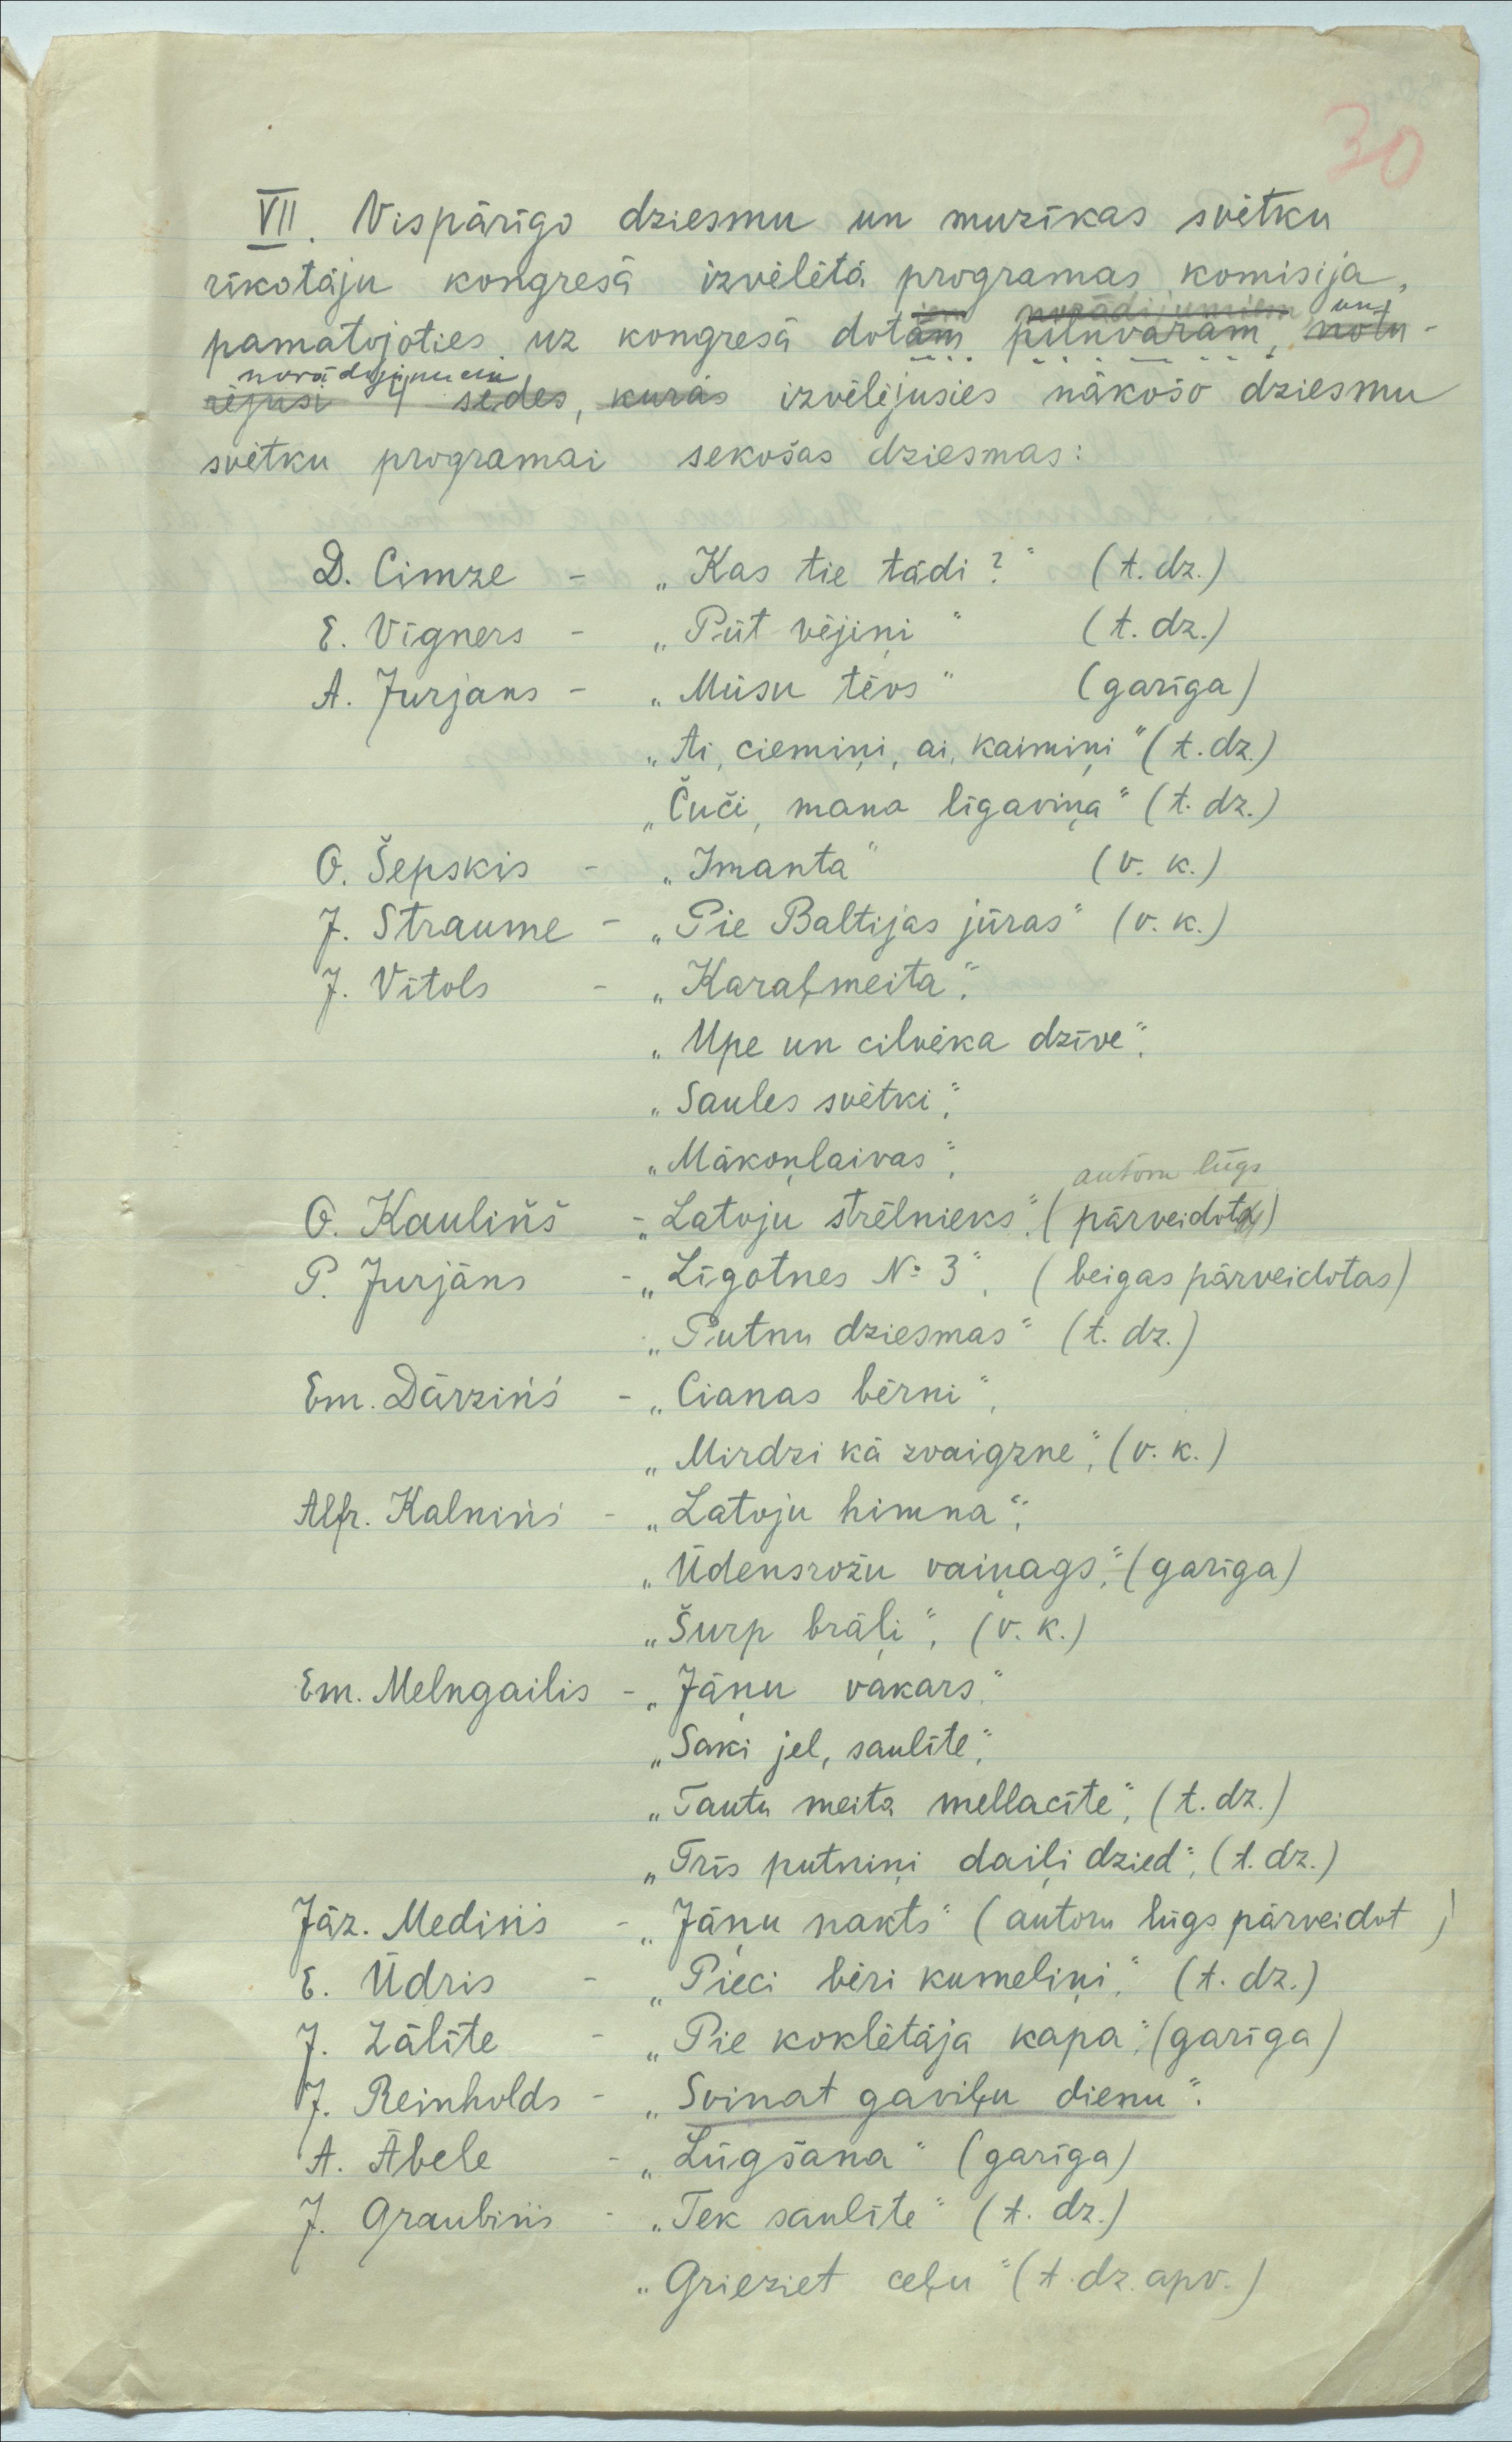 30
VII. Vispārīgo dziesmu un muzīkas svētku
rīkotāju kongresā izvēlētā programas komisija,
iem norādījumiem un
pamatojoties uz kongresā dotām pilnvarām, notu-
norādījumiem
rējusi 4 sēdes, kurās izvēlējusies nākošo dziesmu
svētku programai sekošas dziesmas:
D. Cimze - „Kas tie tādi?" (t. dz.)
E. Vīgners - „Pūt vējiņi" (t. dz.)
A. Jurjans - „Mūsu tēvs" (garīga)
„Ai, ciemiņi, ai, kaimiņi" (t. dz.)
„Čuči, mana līgaviņa" (t. dz.)
O. Šepskis - „Imanta" (v. k.)
J. Straume - „Pie Baltijas jūras" (v. k.)
J. Vītols - „Karaļmeita",
„Upe un cilvēka dzīve",
„Saules svētki",
„Mākoņlaivas",
autoru lūgs
O. Kauliņš - „Latvju strēlnieks", (pārveidot)
P. Jurjāns - „Līgotnes № 3", (beigas pārveidotas)
„Putnu dziesmas" (t. dz.)
Em. Dārziņš - „Ciānas bērni",
„Mirdzi kā zvaigzne", (v. k.)
Alfr. Kalniņš - „Latvju himna",
„Ūdensrožu vaiņags", (garīga)
„Šurp brāļi", (v. k.)
Em. Melngailis - „Jāņu vakars"
„Saki jel, saulīte",
„Tautu meita mellacīte", (t. dz.)
„Trīs putniņi daiļi dzied", (t. dz.)
Jāz. Mediņš - „Jāņu nakts" (autoru lūgs pārveidot)
E. Ūdris - „Pieci bēri kumeliņi", (t. dz.)
J. Zālīte - „Pie koklētāja kapa", (garīga)
J. Reinholds - „Svinat gaviļu dienu".
A. Ābele - „Lūgšana" (garīga)
J. Graubiņš - „Tek saulīte" (t. dz.)
„Grieziet ceļu" (t. dz. apv.)